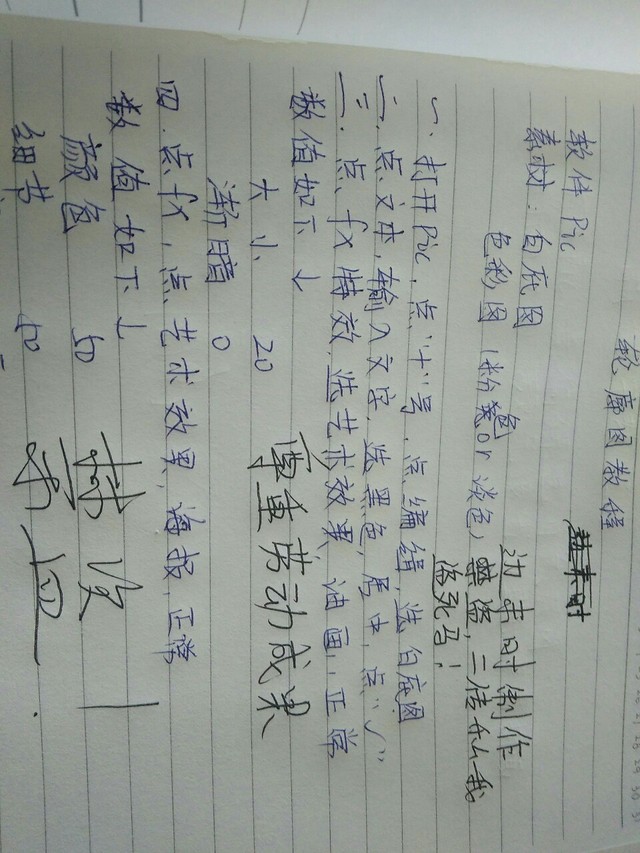 轮廓图教程
软件 Pic
素材：白底图
色彩图（粉色or淡色）
边未时制作
禁盗，二传
一、打开Pic，点“十”号，点编辑，选白底图
二．点文本，输入文字，选黑色，居中，点“√”
三．点fx特效，选艺术效果，油画，正常
数值如下↓
大小 20
渐暗 0
尊重劳动成果
四．点fx，点艺术效果，海报，正常
数值如下↓
颜色 50
细节 40